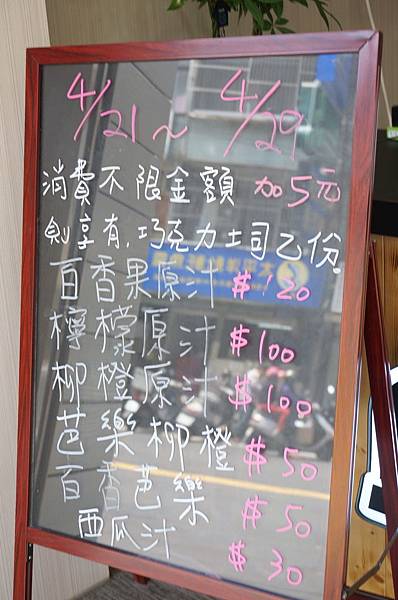 4/21~ 4/29
消費不限金額 加5元
則享有,巧克力土司乙份.
百香果原汁 $120
檸檬原汁 $100
柳橙原汁 $100
芭樂柳橙 $50
百香芭樂 $50
西瓜汁 $30